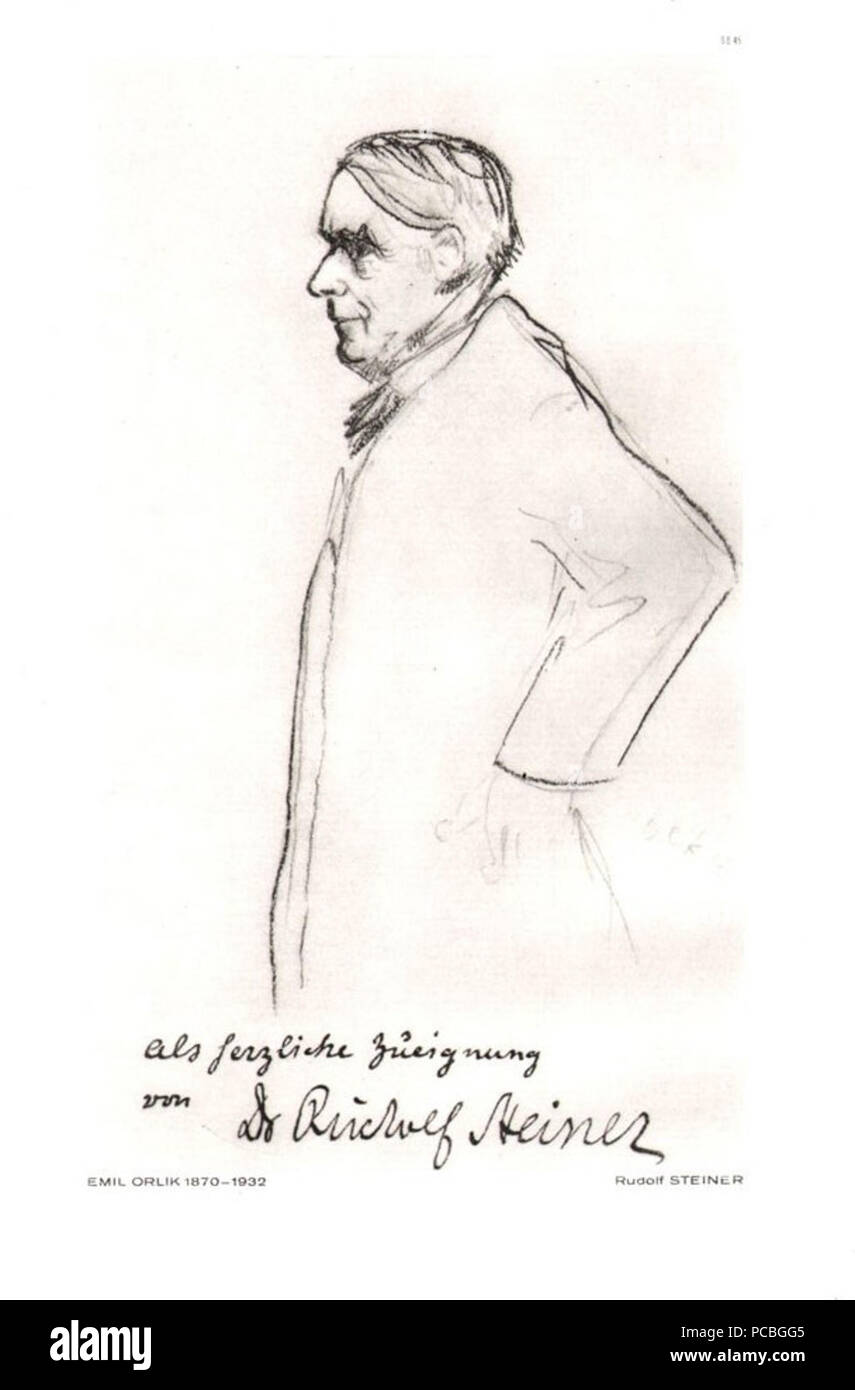 als herzliche Zueignung
von Dr Rudolf Steiner
EMIL ORLIK 1870–1932
Rudolf STEINER
alamy
Image ID: PCBGG5
www.alamy.com